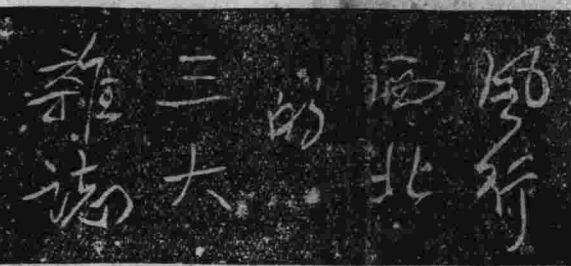 風行
西北
的
三大
雜誌